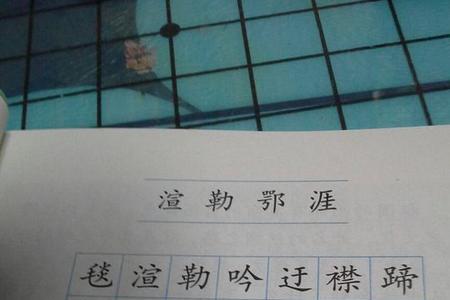 渲勒鄂涯
毯渲勒吟迂襟蹄